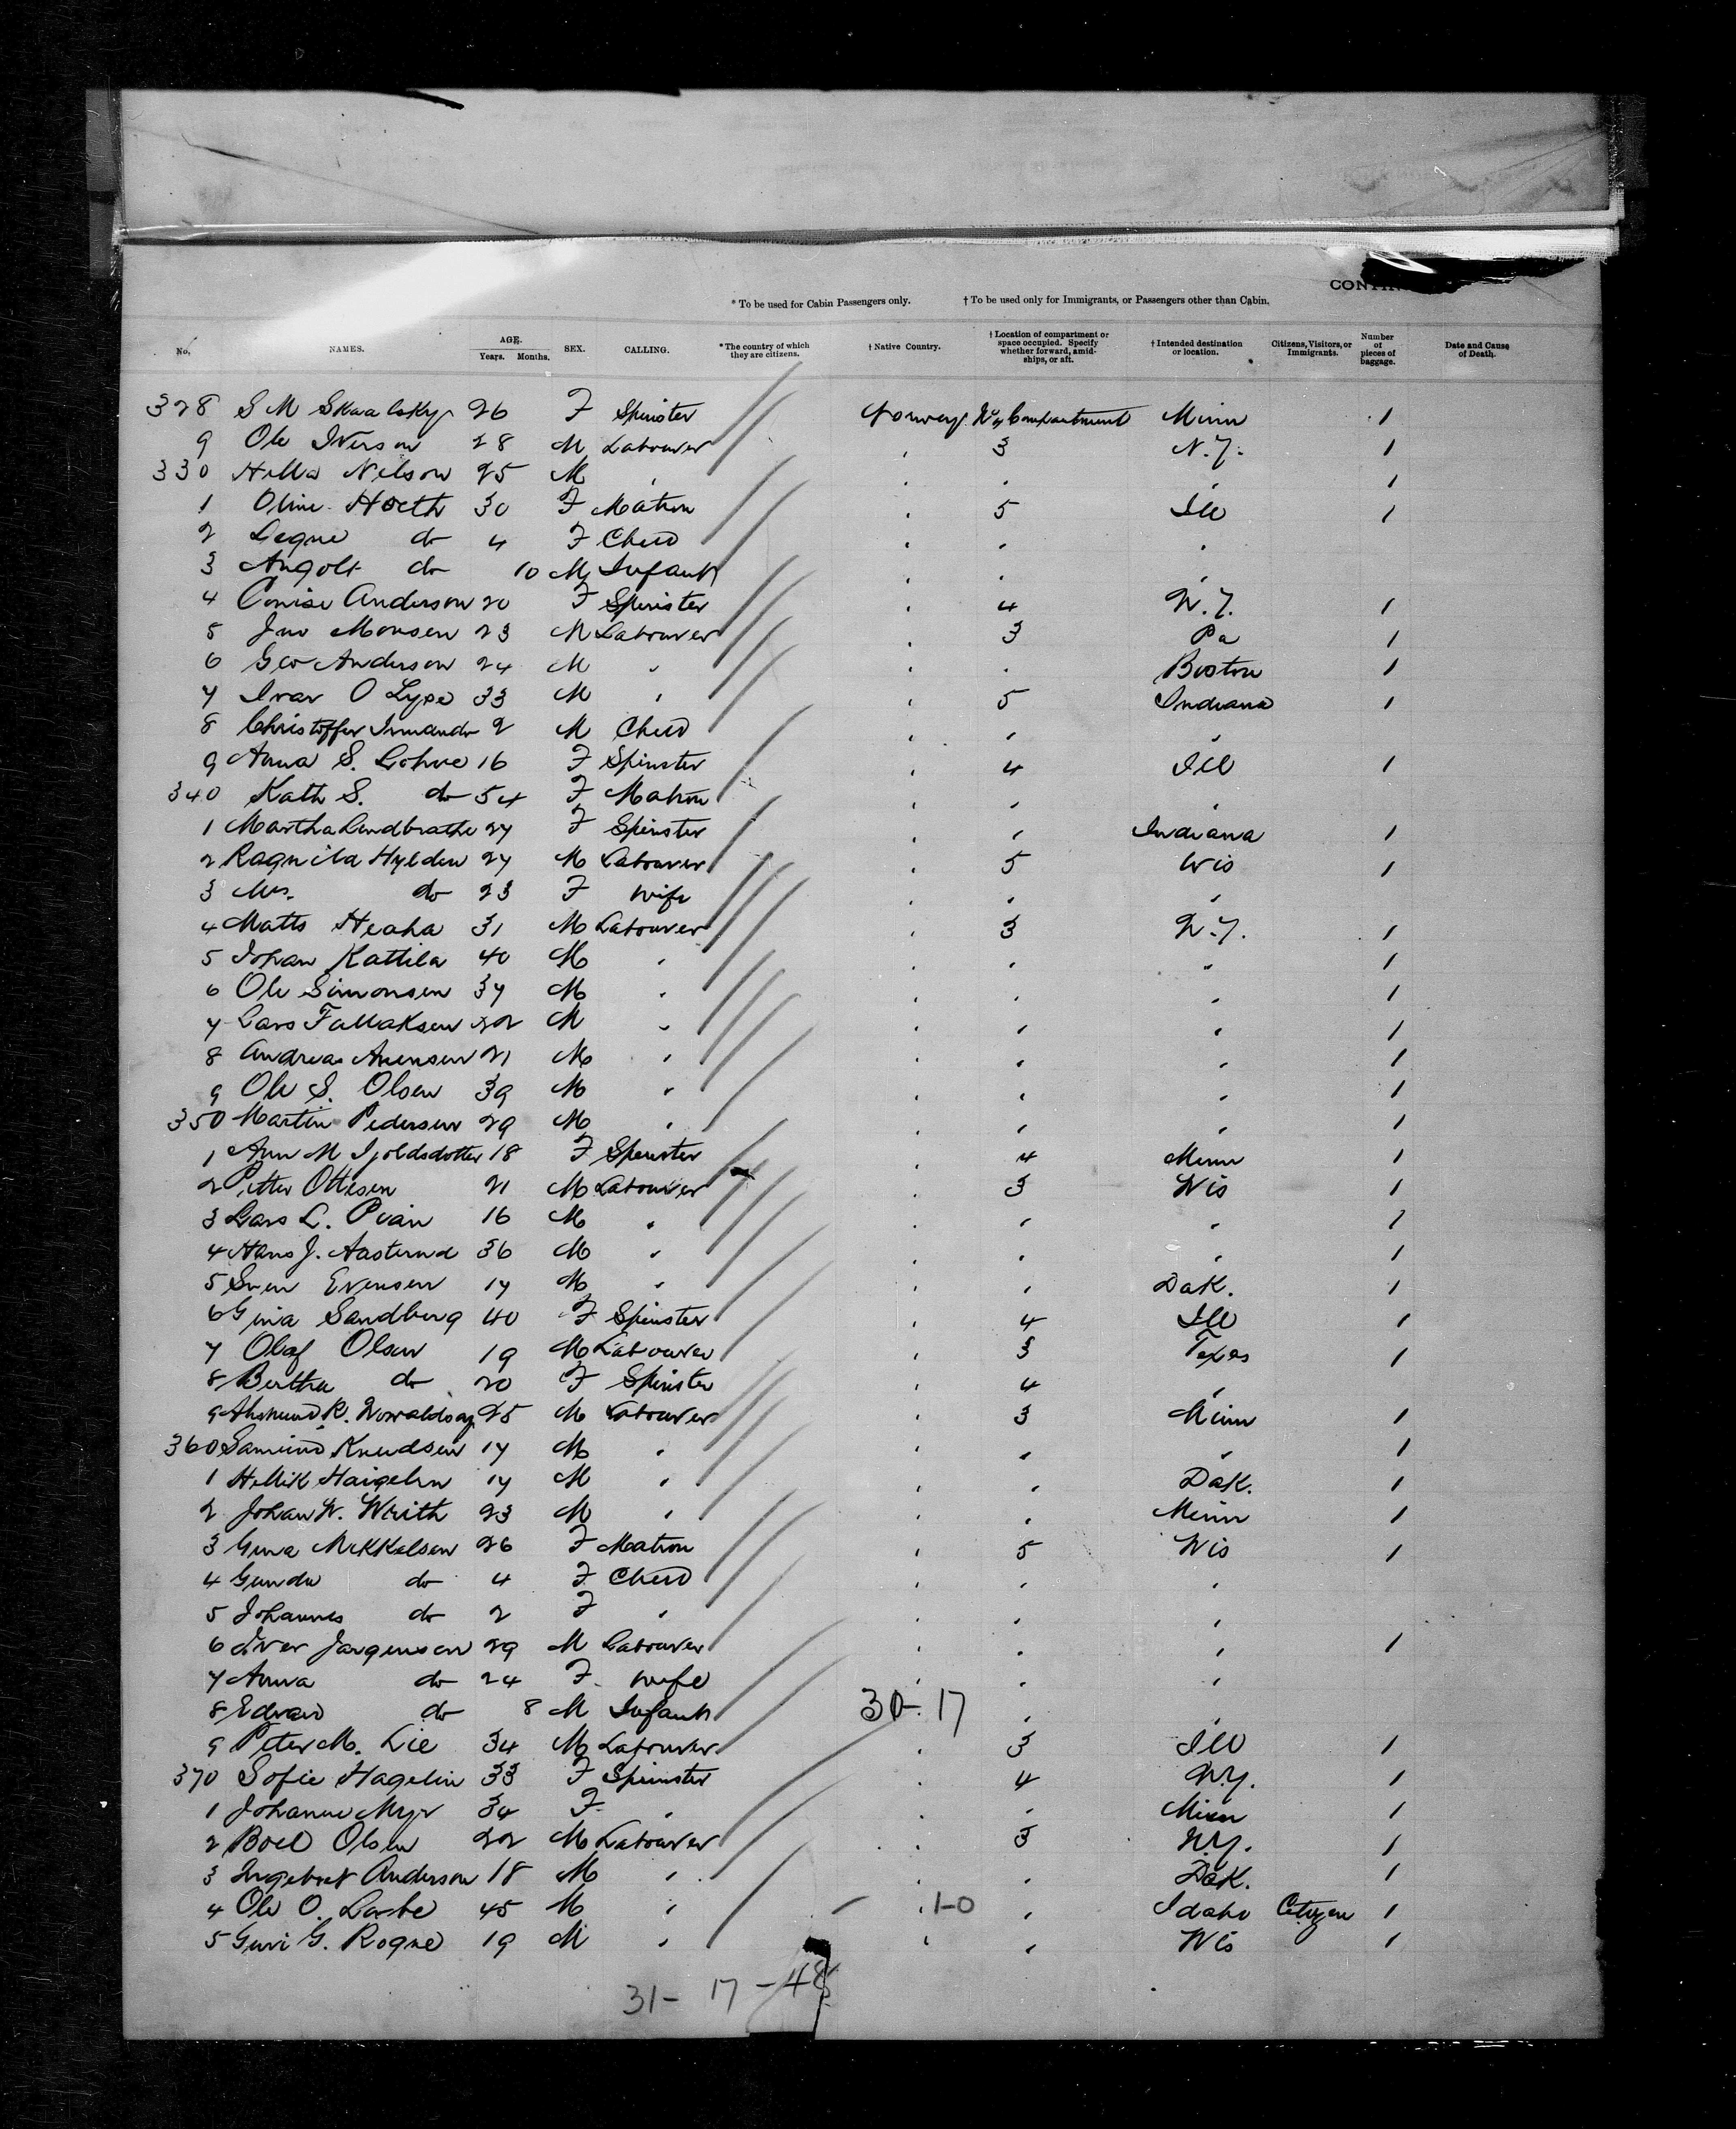 CONTIN
* To be used for Cabin Passengers only. † To be used only for Immigrants, or Passengers other than Cabin.
No. NAMES. AGE. Years. Months. SEX. CALLING. *The country of which they are citizens. † Native Country. † Location of compartment or space occupied. Specify whether forward, amidships, or aft. † Intended destination or location. Citizens, Visitors, or Immigrants. Number of pieces of baggage. Date and Cause of Death.
328 S M 26 F Spinster Norway Compartment Minn 1
9 Ole Iverson 28 M Labourer " 3 N.Y. 1
330 Nelson 25 M " " " " 1
1 Oline Hoeth 30 F Matron " 5 Ill 1
2 do 4 F Child " " "
3 Angolt do 10 M Infant " " "
4 Anderson 20 F Spinster " 4 N.Y. 1
5 Jno Monsen 23 M Labourer " 3 Pa 1
6 Geo Anderson 24 M " " " Boston 1
7 Ivar O Lype 33 M " " 5 Indiana 1
8 Christoffer 2 M Child " " "
9 Anna S. Lohne 16 F Spinster " 4 Ill 1
340 Kath S. do 54 F Matron " " "
1 Martha 27 F Spinster " " Indiana 1
2 Ragnild Hylden 27 M Labourer " 5 Wis 1
3 Mrs. do 23 F Wife " " "
4 Matts Heaha 31 M Labourer " 3 N.Y. 1
5 Johan Kattila 40 M " " " " 1
6 Ole Simonsen 37 M " " " " 1
7 Lars 22 M " " " " 1
8 Andreas 21 M " " " " 1
9 Ole S. Olsen 39 M " " " " 1
350 Martin Pedersen 29 M " " " " 1
1 Ann M 18 F Spinster " 4 Minn 1
2 Petter Ottesen 21 M Labourer " 3 Wis 1
3 Lars L. 16 M " " " " 1
4 Hans J. 36 M " " " " 1
5 Sven Evensen 17 M " " " Dak. 1
6 Gina Sandberg 40 F Spinster " 4 Ill 1
7 Olaf Olsen 19 M Labourer " 3 Texas 1
8 Bertha do 20 F Spinster " 4 "
9 K. 25 M Labourer " 3 Minn 1
360 Knudsen 17 M " " " " 1
1 17 M " " " Dak. 1
2 Johan W. 23 M " " " Minn 1
3 Gina Mikkelsen 26 F Matron " 5 Wis 1
4 Gunda do 4 F Child " " "
5 Johannes do 2 F " " " "
6 Iver Jorgenson 29 M Labourer " " " 1
7 Anna do 24 F Wife " " "
8 Edvard do 8 M Infant 30-17 " "
9 Peter M. Lie 34 M Labourer " 3 Ill 1
370 Sofie Hagelin 33 F Spinster " 4 N.Y. 1
1 Johanne Myr 34 F " " " Minn 1
2 Boel Olsen 22 M Labourer " 3 N.Y. 1
3 Anderson 18 M " " " Dak. 1
4 Ole O. 45 M " " 1-0 " Idaho Citizen 1
5 Guri G. Rogne 19 M " " " Wis 1
31- 17 -48